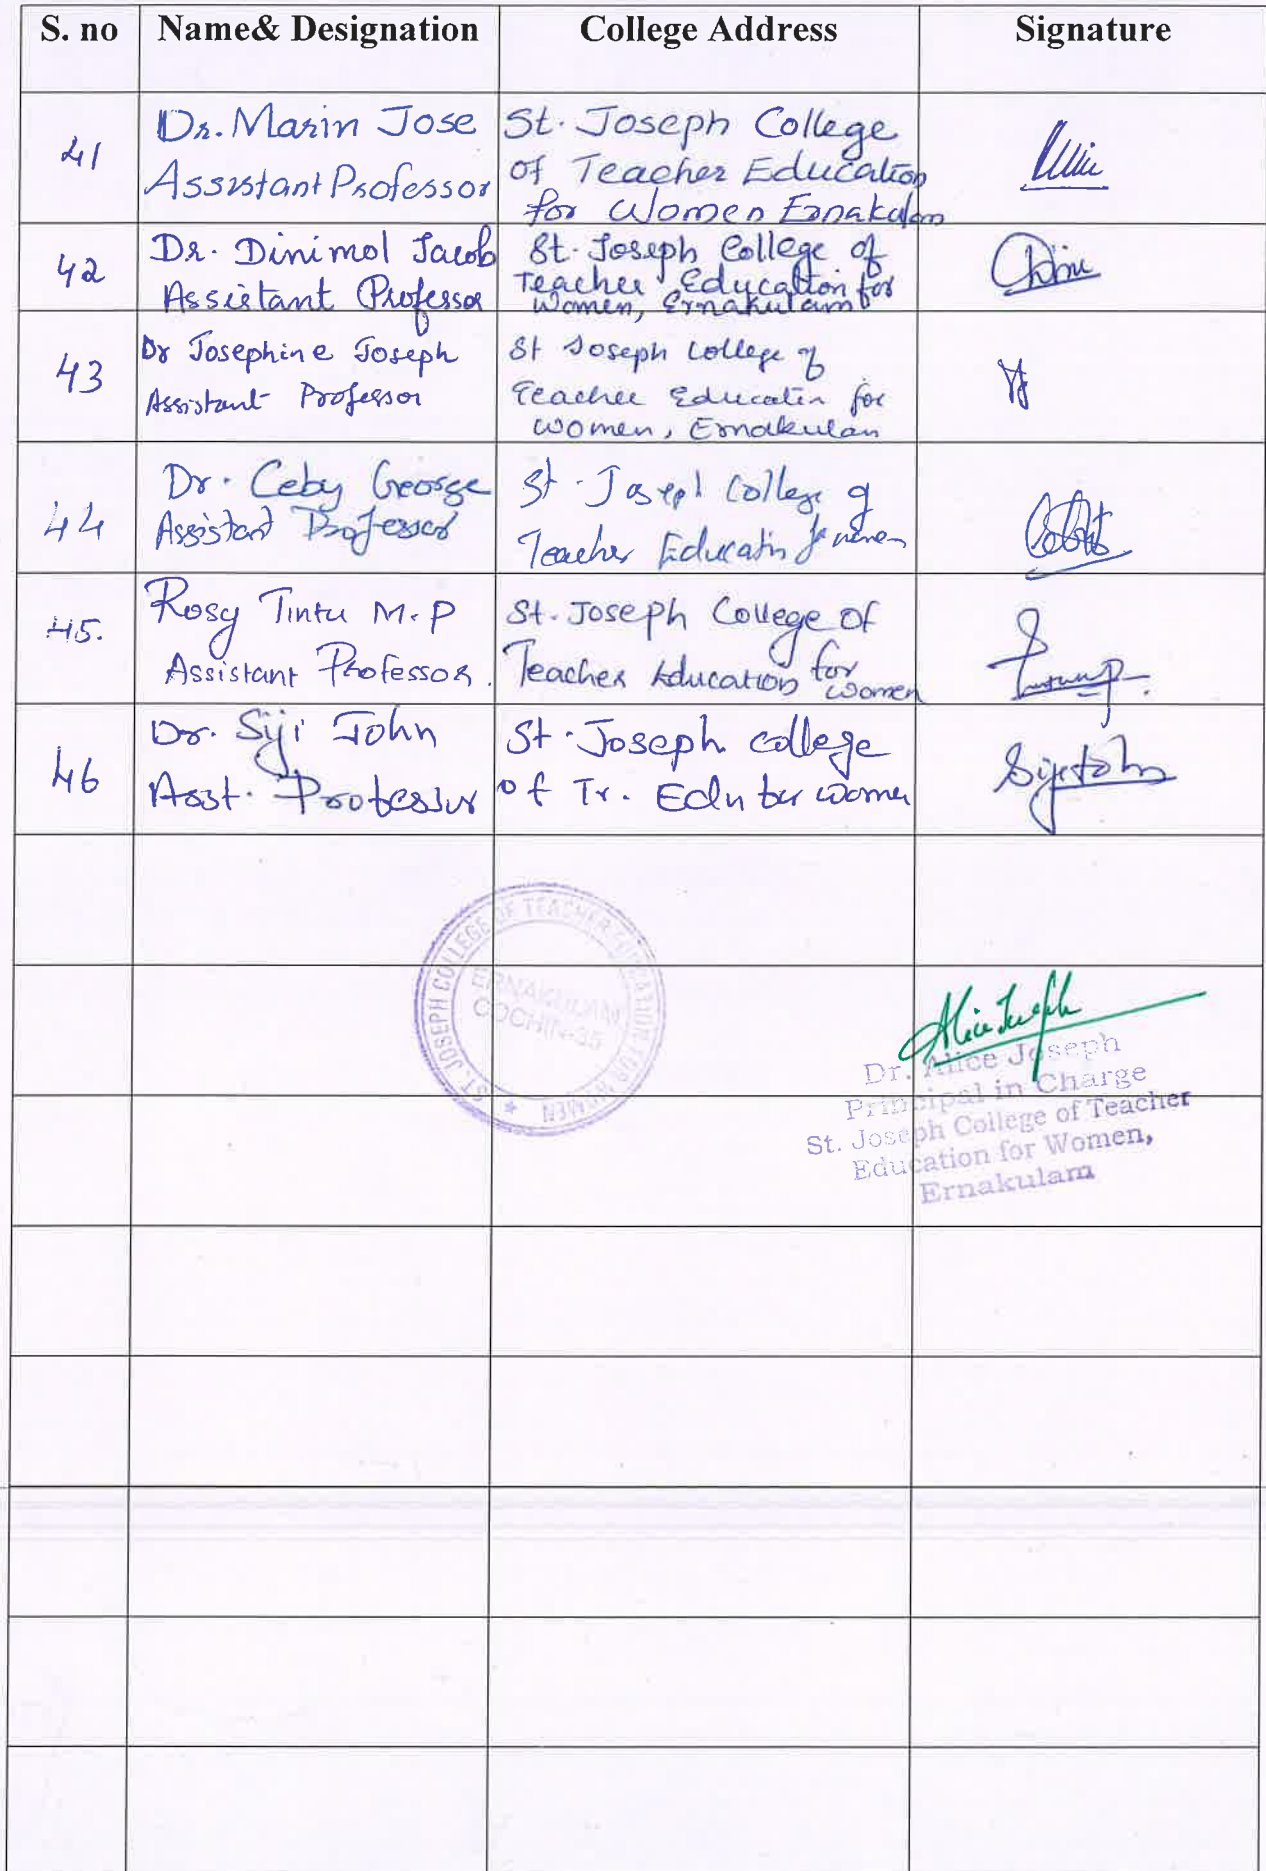 S. no Name& Designation College Address Signature
41
Dr. Marin Jose
Assistant Professor
St. Joseph College
of Teacher Education
for Women Ernakulam
42
Dr. Dinimol Jacob
Assistant Professor
St. Joseph College of
Teacher Education for
Women, Ernakulam
43
Dr Josephine Joseph
Assistant Professor
St Joseph College of
Teacher Education for
women, Ernakulam
44
Dr. Ceby George
Assistant Professor
St. Joseph College of
Teacher Education for women
45.
Rosy Tintu M.P
Assistant Professor.
St. Joseph College of
Teacher Education for
women
46
Dr. Siji John
Asst. Professor
St. Joseph college
of Tr. Edn for women
Sijijohn
ST. JOSEPH COLLEGE OF TEACHER EDUCATION FOR WOMEN
ERNAKULAM
COCHIN-35
Alice Joseph
Dr. Alice Joseph
Principal in Charge
St. Joseph College of Teacher
Education for Women,
Ernakulam